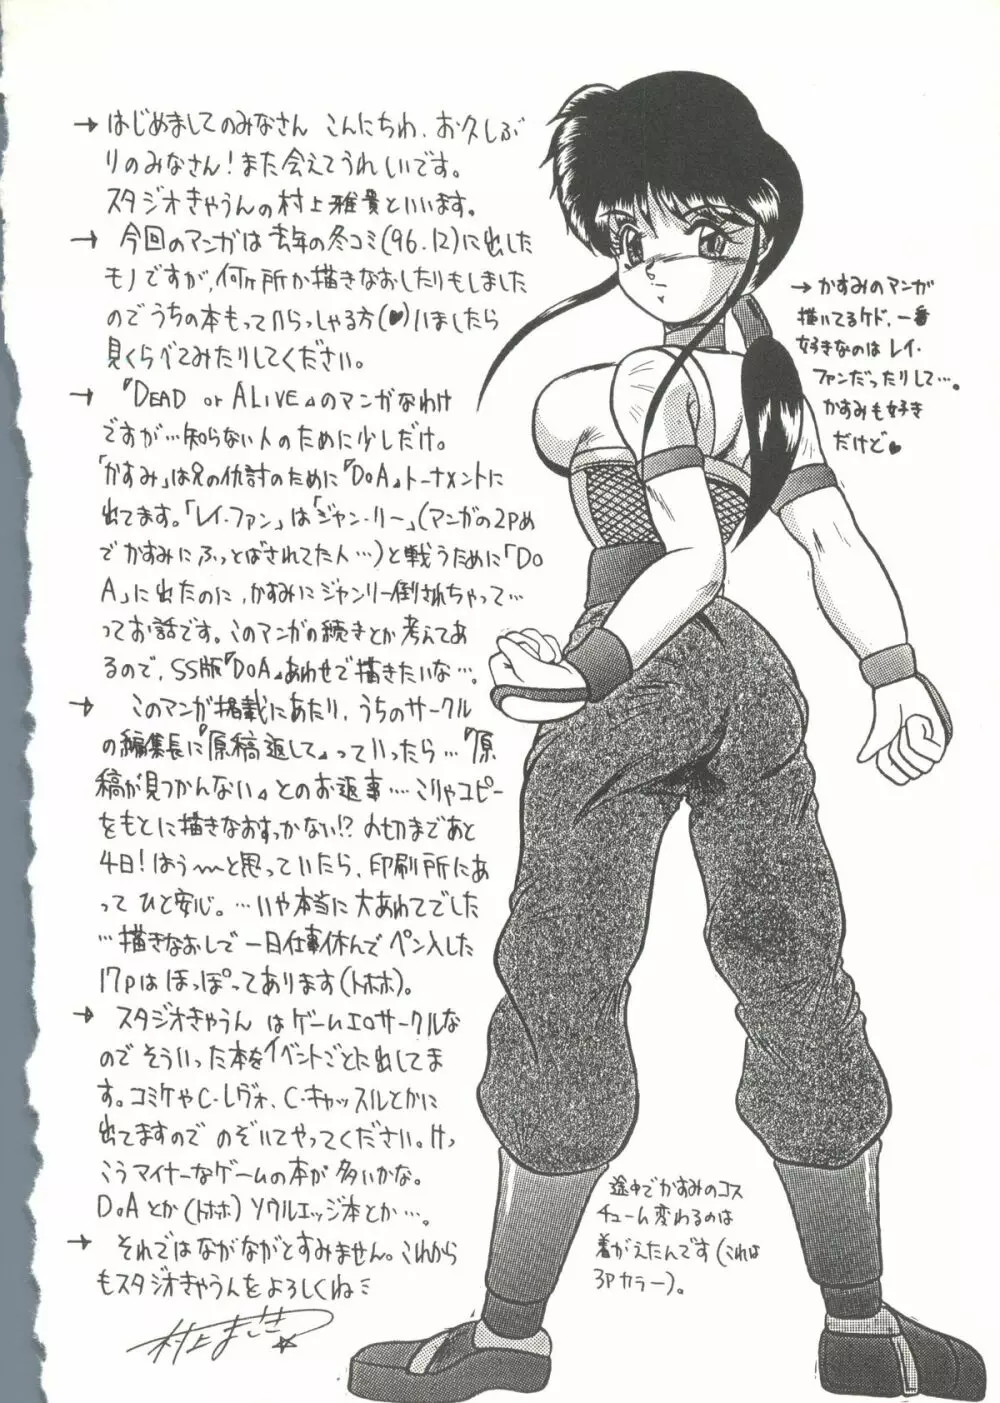 →はじめましてのみなさん こんにちわ、お久しぶ
りのみなさん!また会えてうれしいです。
スタジオきゃうんの村上雅貴といいます。
→ 今回のマンガは去年の冬コミ(96.12)に出した
モノですが、何ヶ所か描きなおしたりもしました
のでうちの本もっていらっしゃる方(♥)いましたら
見くらべてみたりしてください。
→ 『DEAD or ALIVE』のマンガなわけ
ですが…知らない人のために少しだけ。
「かすみ」は兄の仇討のために『DoA』トーナメントに
出てます。「レイ・ファン」は「ジャン・リー」(マンガの2pめ
でかすみにふっとばされてた人…)と戦うために「Do
A」に出たのに、かすみにジャンリー倒されちゃって…
ってお話です。このマンガの続きとか考えてあ
るので、SS版『DoA』あわせで描きたいな…。
→ このマンガ掲載にあたり、うちのサークル
の編集長に『原稿返して』っていったら…『原
稿が見つかんない』とのお返事…こりゃコピー
をもとに描きなおすっかない!? 〆切まであと
4日!はう〜〜と思っていたら、印刷所にあ
って ひと安心。…いや本当に大あわてでした
…描きなおしで一日仕事休んでペン入した
17pはほっぽってあります(トホホ)。
→ スタジオきゃうん はゲームエロサークルな
ので そういった本をイベントごとに出してま
す。コミケやC・レヴォ、C・キャッスルとかに
出てますので のぞいてやってください。けっ
こうマイナーなゲームの本が多いかな。
DoAとか(トホホ)ソウルエッジ本とか…。
→ それではながながとすみません。これから
もスタジオきゃうんをよろしくね
村上まさき☆
→かすみのマンガ
描いてるケド、一番
好きなのはレイ・
ファンだったりして…。
かすみも好き
だけど♥
途中でかすみのコス
チューム変わるのは
着がえたんです(これは
3Pカラー)。